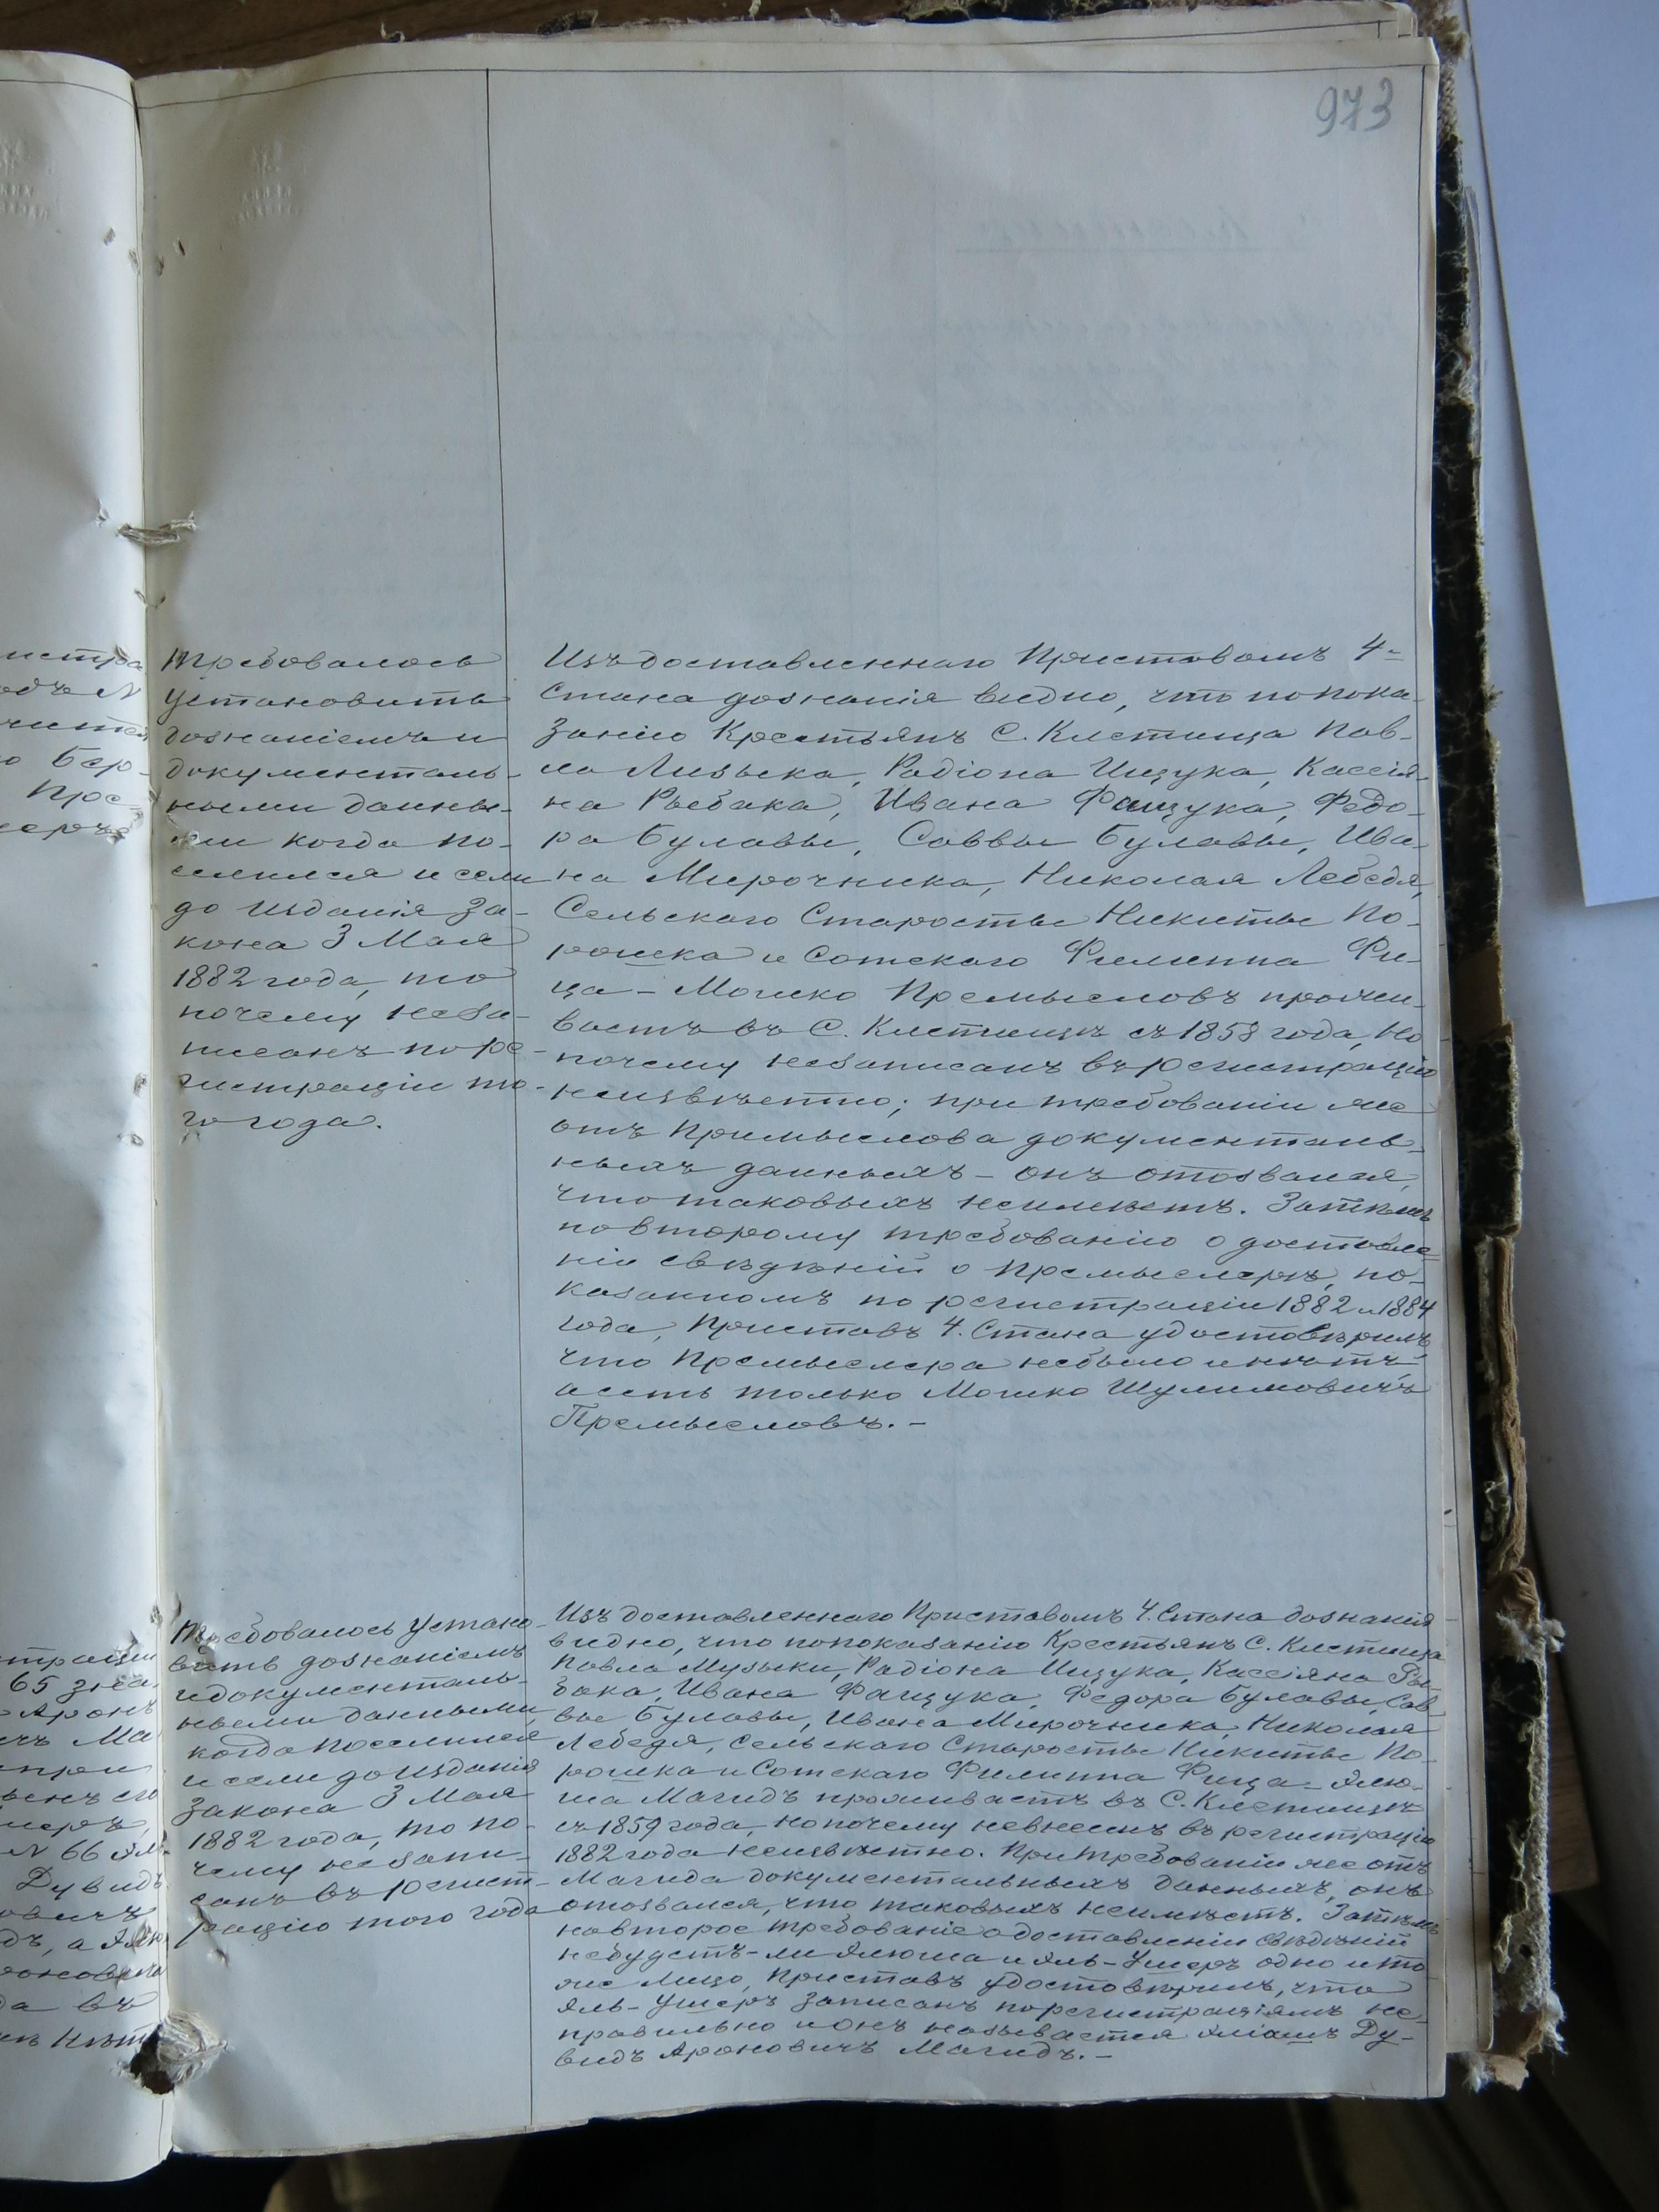 973
Требовалось
установить
дознаніемъ и
документаль-
ными данны-
ми когда по-
селился и если
до изданія за-
кона 3 Мая
1882 года, то
почему неза-
писанъ по ре-
гистраціи то-
го года.
Изъ доставленнаго Приставомъ 4-
Стана дознанія видно, что по пока-
занію Крестьянъ С. Клетища Пав-
ла Лизыка, Радіона Ищука, Кассія-
на Рыбака, Ивана Фащука, Федо-
ра Булавы, Саввы Булавы, Ива-
на Мирочника, Николая Лебедя,
Сельскаго Старосты Никиты По-
рошка и Сотскаго Филиппа Фи-
ца - Мошко Премысловъ прожи-
ваетъ въ С. Клетищѣ съ 1858 года, но
почему незаписанъ въ регистрацію
неизвѣстно; при требованіи же
отъ Примыслова документаль-
ныхъ данныхъ - онъ отозвался,
что таковыхъ неимѣетъ. Затѣмъ
по второму требованію о доставле
ніи свѣдѣній о Премыслерѣ, по-
казанномъ по регистраціи 1882 и 1884
года, Приставъ 4. Стана удостовѣрилъ,
что Премыслера небыло и нѣтъ,
а есть только Мошко Шулимовичъ
Премысловъ. -
Требовалось устано-
вить дознаніемъ
и документаль-
ными данными,
когда поселился
и если до изданія
закона 3 Мая
1882 года, то по-
чему незапи-
санъ въ регист-
рацію того года
Изъ доставленнаго Приставомъ 4. Стана дознанія
видно, что по показанію Крестьянъ С. Клетища
Павла Музыки, Радіона Ищука, Кассіяна Ры-
бака, Ивана Фащука, Федора Булавы, Сав
вы Булавы, Ивана Мирочника, Николая
Лебедя, Сельскаго Старосты Никиты По-
рошка и Сотскаго Филиппа Фица - Элю-
ша Магидъ проживаетъ въ С. Клетищѣ
съ 1859 года, но почему невнесенъ въ регистрацію
1882 года неизвѣстно. При требованіи же отъ
Магида документальныхъ данныхъ, онъ
отозвался, что таковыхъ неимѣетъ. Затѣмъ
на второе требованіе о доставленіи свѣдѣній
небудетъ-ли Элюша и Эль-Ушеръ одно и то
же лицо, Приставъ удостовѣрилъ, что
Эль-Ушеръ записанъ по регистраціямъ не-
правильно и онъ называется Эліашъ Ду-
видъ Ароновичъ Магидъ. -